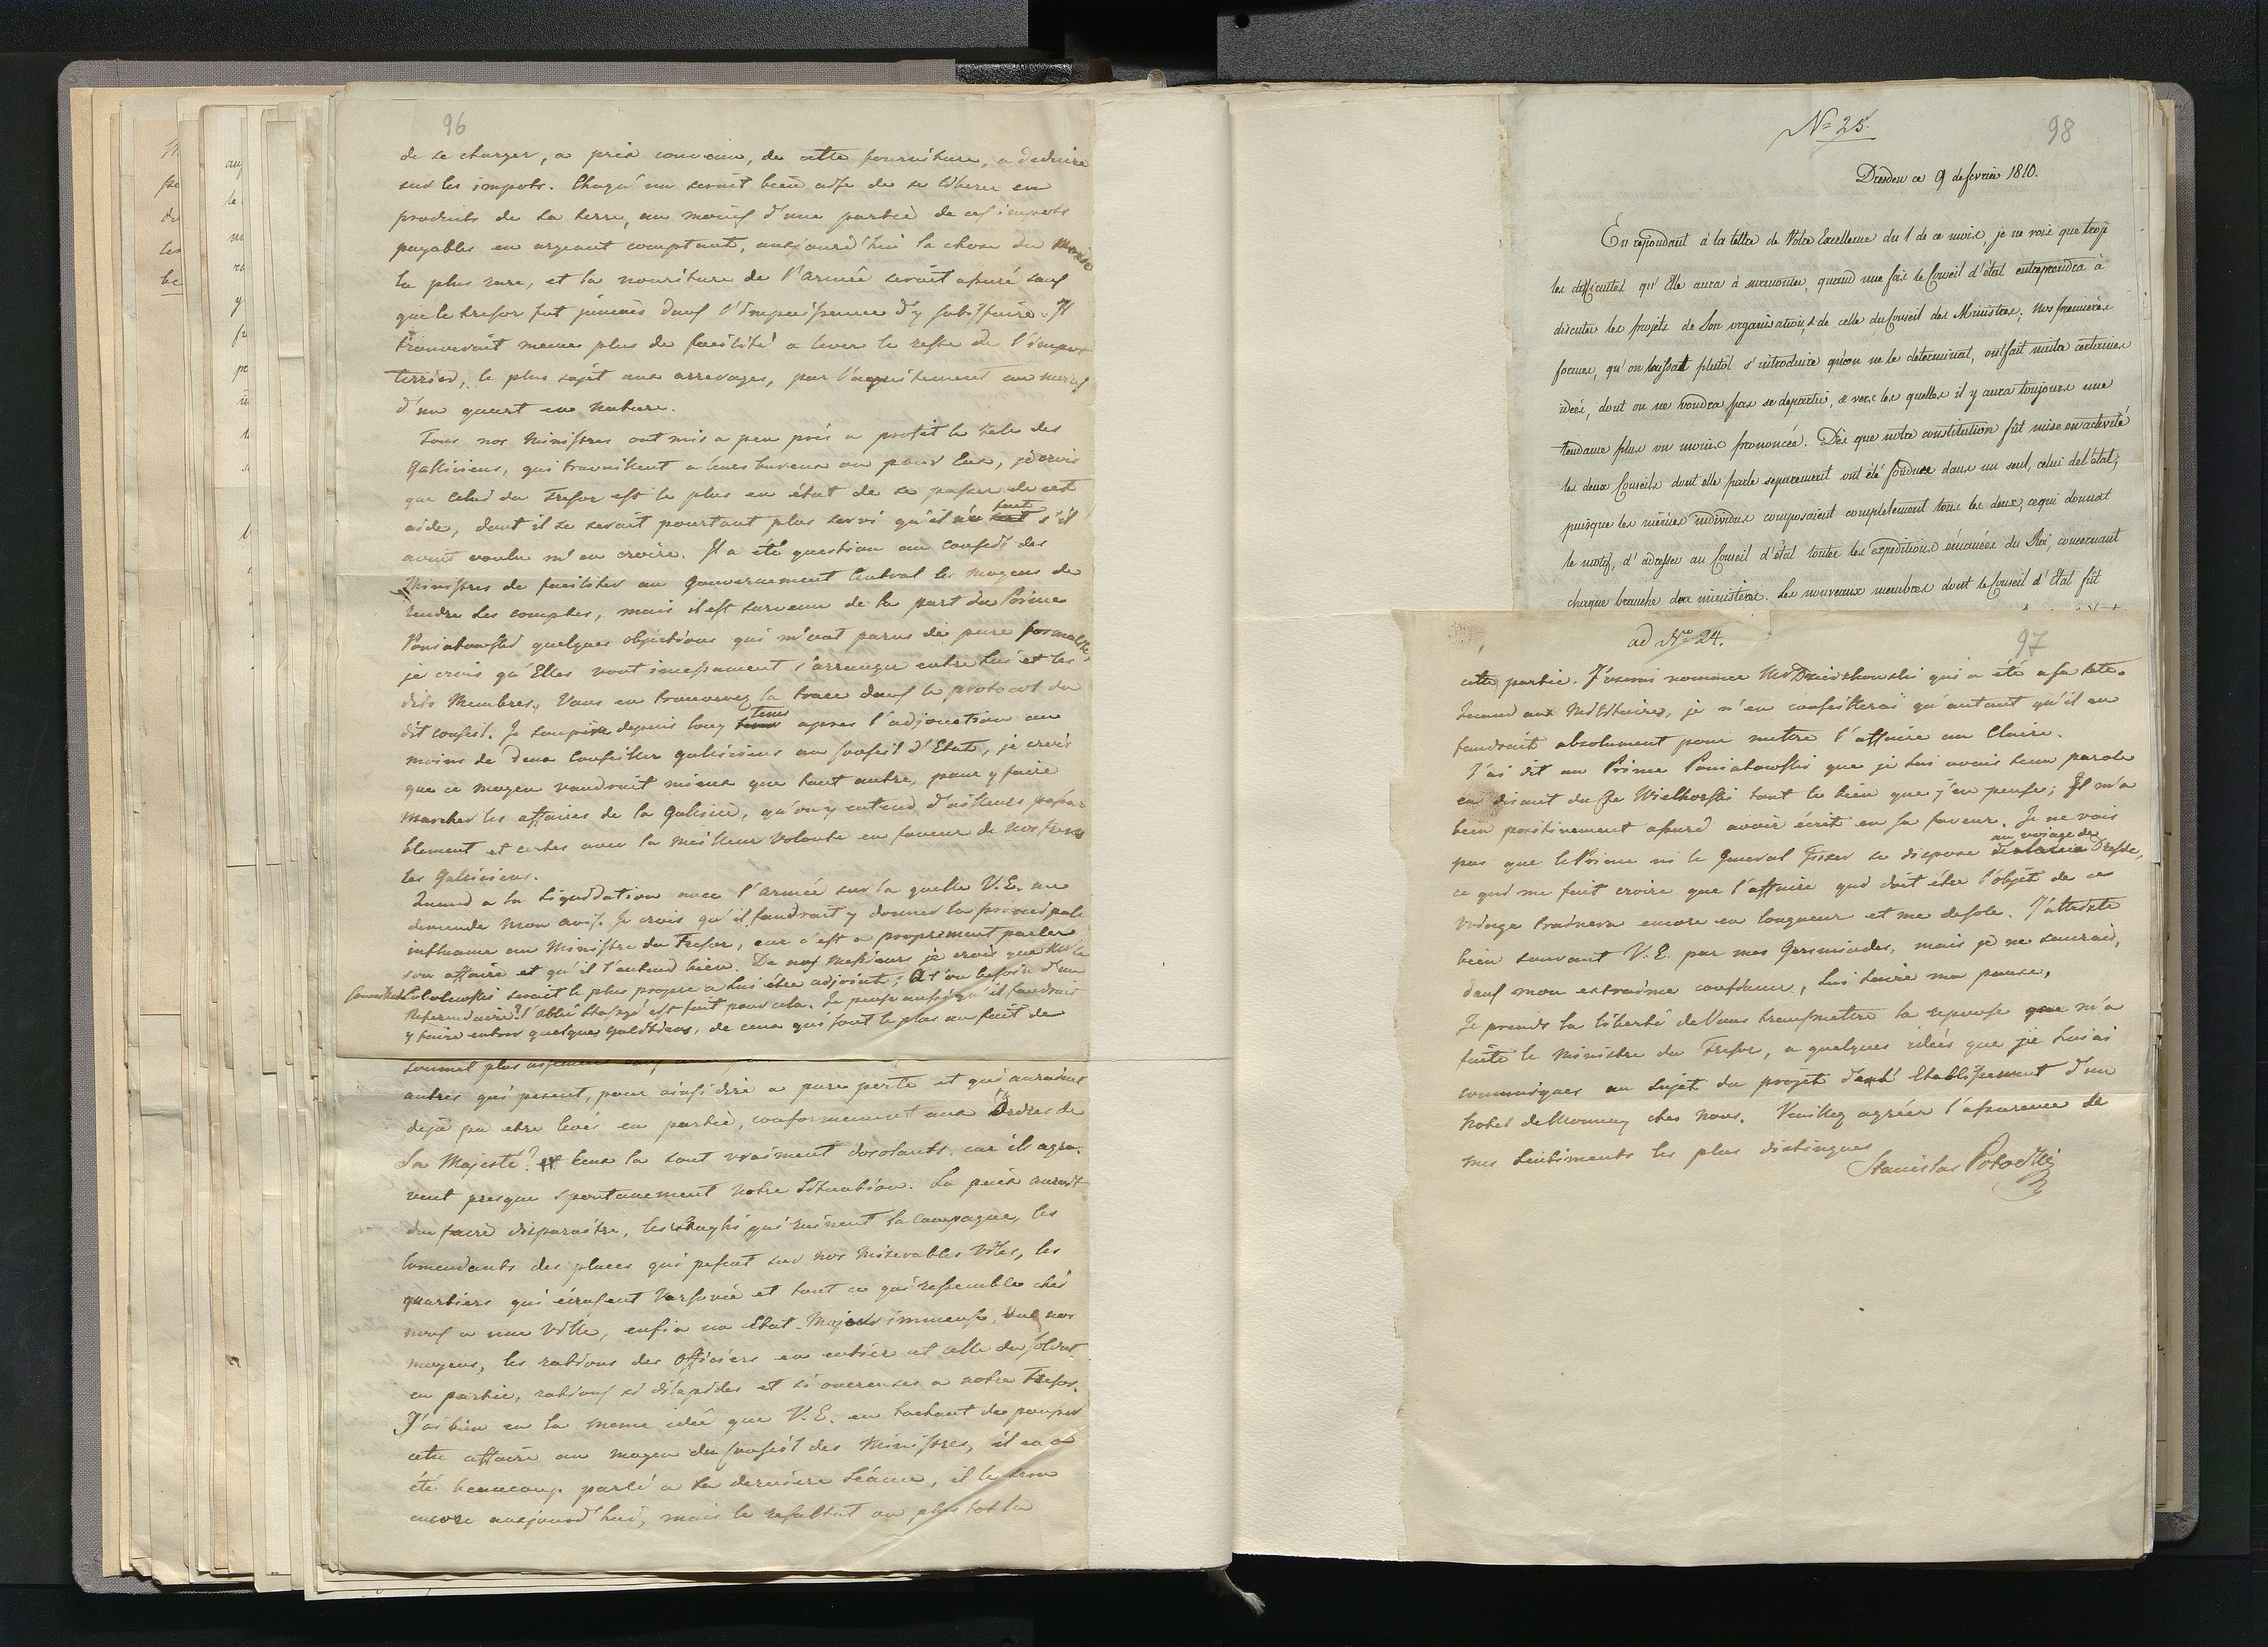 96
de se charger, a prix convenu, de cette fourniture, a deduire
sur les impots. Chaqu'un serait bien aise de se liberer en
produits de la terre, au moins d'une partie de ces impots
payables en argeant comptant, aujourd'hui la chose du monde
la plus rare, et la nouriture de l'Armée serait assuré sans
que le tresor fut jamais dans l'impuissence d'y satisffaire. Il
trouverait meme plus de facilité a lever le reste de l'impot
, le plus sujet aux arrerages, par l'aquitement au moins
d'un quart en nature.
Tous nos Ministres ont mis a peu près a profit le zele des
Galliciens, qui travaillent a leurs bureaux ou pour Eux, je crois
que celui du Tresor est le plus en état de se passer de cet
aide, dont il se serait pourtant plus servi qu'il n'en fait s'il
avait voulu m'en croire. Il a été question au conseil des
Ministres de faciliter au Gouvernement Central les moyens de
rendre ses comptes, mais il est survenu de la part du Prince
Poniatowski quelques objections qui m'ont parus de pure formalité,
je crois qu'Elles vont incessament s'arranger entre lui et les
dits Membres. Vous en trouverez la trace dans le protocol du
dit conseil. Je soupire depuis long tems apres l'adjonction au
moins de deux Conseiller galiciens au Conseil d'Etat, je crois
que ce moyen vaudrait mieux que tout autre, pour y faire
marcher les affaires de la Galicie, qu'on y entend d'ailleurs passa-
blement et certes avec la meilleur volonte en faveur de nos freres
les Galiciens.
Quand a la liquidation avec l'armée sur la quelle V.E. me
demande mon avis. Je crois qu'il faudrait y donner la principale
influance au Ministre du Tresor, car c'est a proprement parler
son affaire et qu'il l'entend bien. De nos Messieurs je crois que Mr le
Conseiller Sobolewski serait le plus propre a lui être adjoint; A t'on besoin d'un
Referendaire? l'Abbé Staszyc est fait pour cela. Je pense aussi qu'il faudrait
y faire entrer quelques galiciens, de ceux qui sont le plus au fait de
autres qui pesent, pour ainsi dire a pure perte et qui auraient
deja pu etre levés en partie, conformement aux Ordres de
Sa Majesté? Ceux la sont vraiment desolants, car ils agra-
vent presque spontanement notre Situation. La paix aurait
du faire disparaitre, les qui ruinent la Campagne, les
Comendants des places qui pesent sur nos miserables Villes, les
quartiers qui écrasent Varsovie et tout ce qui ressemble chés
nous a une Ville, enfin un Etat-Major immense, vue nos
moyens, les rations des Officiers en entier et celle du soldat
en partie, rations si dilapidés et si onereuses a notre Tresor.
J'ai bien eu la meme idée que V.E. en tachant de pousser
cette affaire au moyen du Conseil des Ministres, il en a
été beaucoup parlé a la derniere Séance, il le sera
encore aujourd'hui, mais le resultat ou plus tot la
No 25.
98
Dresden ce 9 de fevrier 1810.
En repondant à la lettre de Votre Excellence du 1 de ce mois, je ne vois que trop
les difficultés qu'Elle aura à surmonter, quand une fois le Conseil d'état entreprendra à
discuter les projets de Son organisation, & de celle du Conseil des Ministres; Nos premières
formes, qu'on laissat plutôt s'introduire qu'on ne le determinat, ont fait naitre certaines
idées, dont on ne voudra pas se departir, & vers les quelles il y aura toujours une
tendance plus ou moins prononcée. Dès que notre constitution fût mise en activité
les deux Conseils dont elle parle separement ont été fondues dans un seul, celui de l'état;
puisque les mêmes individus composaient completement tous les deux, ce qui donnat
le motif, d'adresser au Conseil d'état toutes les expeditions émanées du Roi, concernant
chaque branche des ministères. Les nouveaux membres dont le Conseil d'Etat fût
ad No 24.
97
cette partie. J'oserai nommer Mr Dzierzkowski qui a été a sa tete.
Quand aux Militaires, je n'en conseillerai qu'autant qu'il en
faudrait absolument pour mettre l'affaire au Claire.
J'ai dit au Prince Poniatowski que je lui avais tenu parole
en disant du Ge Wielhorski tout le bien que j'en pense; Il m'a
bien positivement assuré avoir écrit en sa faveur. Je ne vois
pas que le Prince ni le General Fiszer se dispose au voiage de Dresde,
ce qui me fait croire que l'affaire qui doit être l'objet de ce
voiage trainera encore en longueur et me desole. J'attriste
bien souvant V.E. par mes Geremiades, mais je ne saurais,
dans mon extraime confiance, lui taire ma pensée.
Je prends la liberté de Vous transmettre la reponse que m'a
faite le Ministre du Tresor, a quelques idées que je lui ai
communiques au sujet du projet Etablissement d'un
hotel de Monnay chés nous. Veuillez agréer l'assurence de
mes Sentiments les plus distingues
Stanislas Potocki